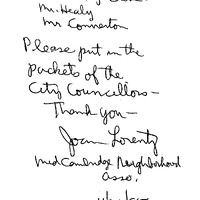 Mr. Healy
Mr Connerton
Please put in the
packets of the
City Councillors—
Thank you—
Joan Lorentz
Mid Cambridge Neighborhood
Asso.